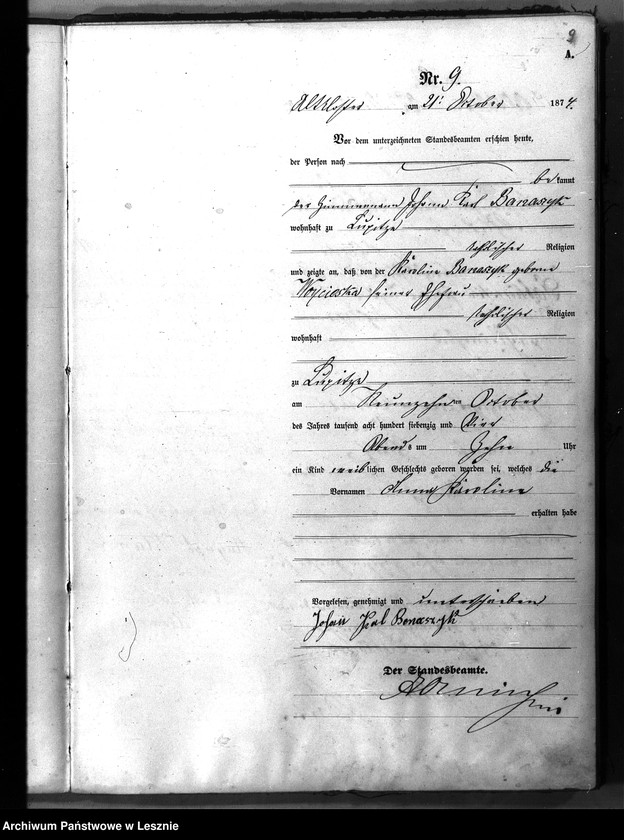 9
A.
Nr. 9.
Altkloster am 21t October 1874.
Vor dem unterzeichneten Standesbeamten erschien heute,
der Person nach
bekannt
der Zimmermann Johann Karl Banaszyk
wohnhaft zu Lupitze
katholischer Religion
und zeigte an, daß von der Karoline Banaszyk geborne
seiner Ehefrau
katholischer Religion
wohnhaft
zu Lupitze
am Neunzehn October
des Jahres tausend acht hundert siebenzig und Vier
Abends um Zehn Uhr
ein Kind weiblichen Geschlechts geboren worden sei, welches die
Vornamen Anna Karoline
erhalten habe
Vorgelesen, genehmigt und unterschrieben
Johan Karl Banaszyk
Der Standesbeamte.
Archiwum Państwowe w Lesznie